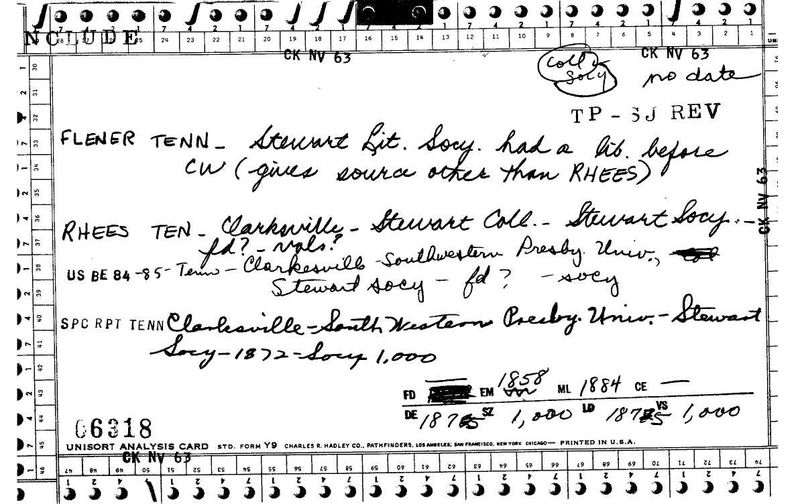 NCLUDE
CK NV 63
CK NV 63
Coll &
Socy
no date
TP - SJ REV
FLENER TENN - Stewart Lit. Socy. had a lib. before
CW (gives source other than RHEES)
CK NV 63
RHEES TEN - Clarksville - Stewart Coll. - Stewart Socy. -
fd? - vols?
US BE 84-85 - Tenn - Clarkesville - Southwestern Presby. Univ.,
Stewart socy - fd ? - socy
SPC RPT TENN Clarksville - South Western Presby. Univ. - Stewart
Socy - 1872 - Socy 1,000
FD EM 1858 ML 1884 CE —
DE 1875 SZ 1,000 LD 1875 VS 1,000
06318
UNISORT ANALYSIS CARD STD. FORM Y9 CHARLES R. HADLEY CO., PATHFINDERS, LOS ANGELES, SAN FRANCISCO, NEW YORK CHICAGO — PRINTED IN U.S.A.
CK NV 63